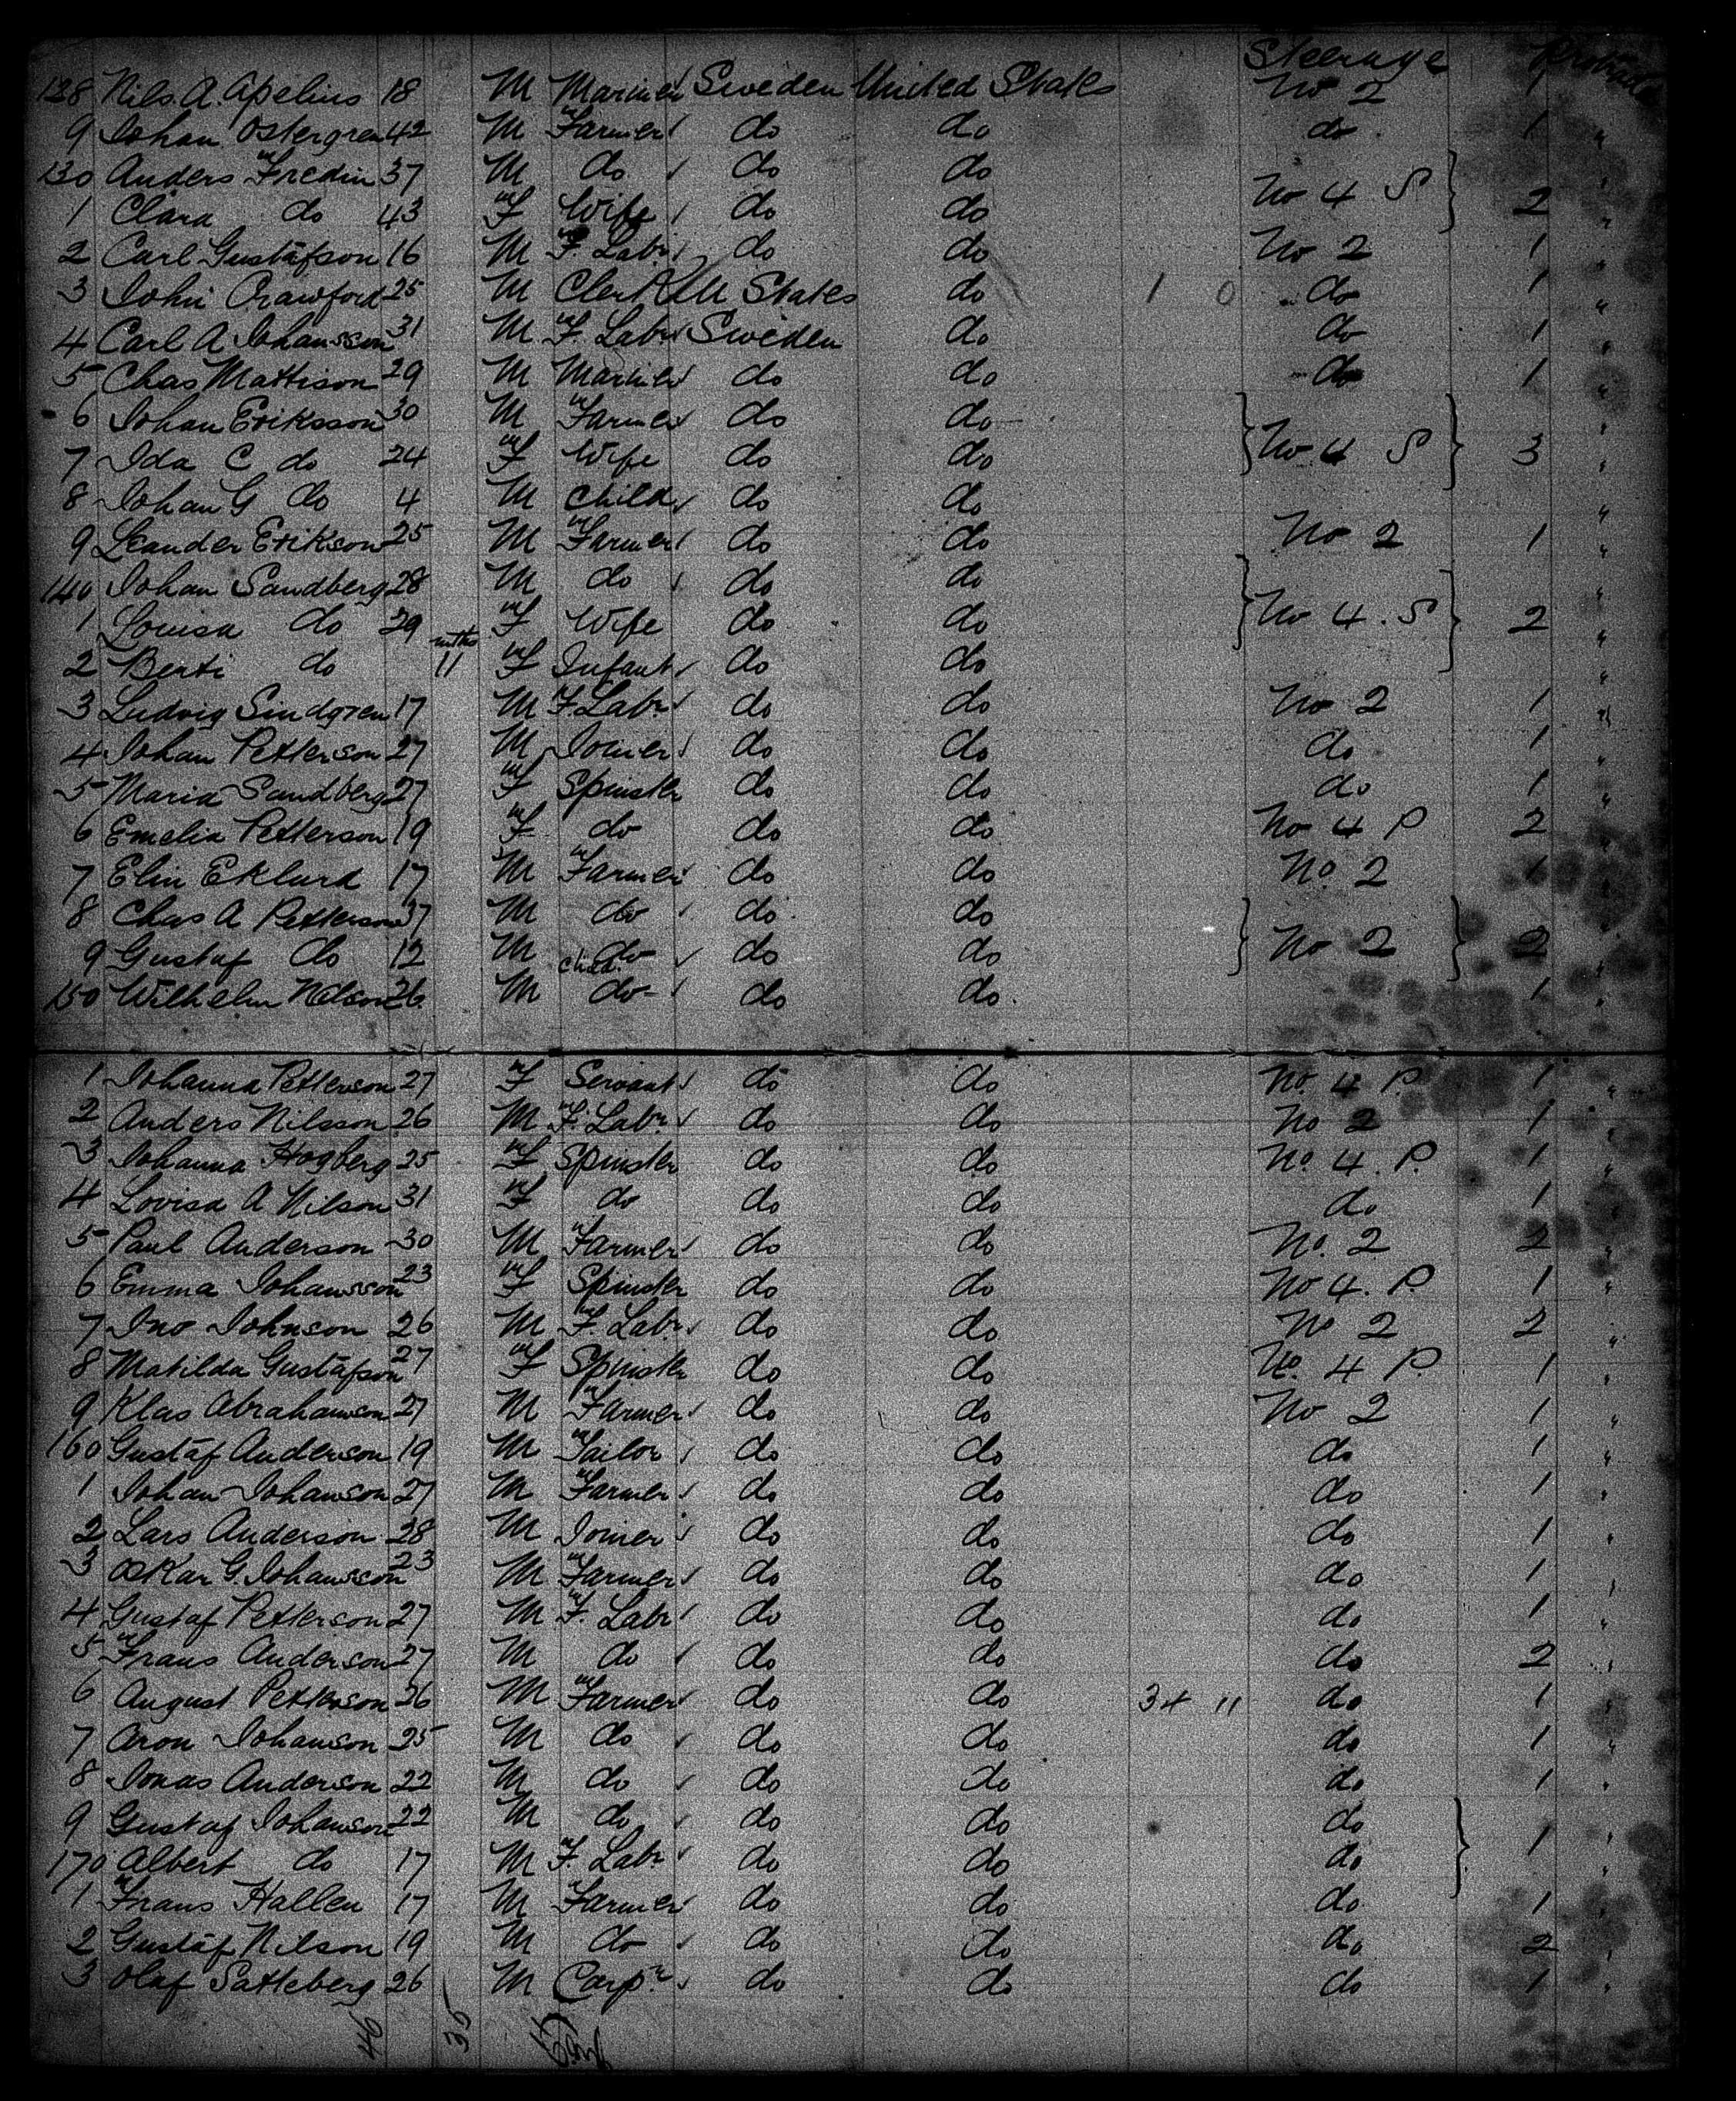 Steerage
128 Nils. A. Apelius 18 M Mariner Sweden United States No 2 1
9 Johan Ostergren 42 M Farmer do do do 1 "
130 Anders Fredin 37 M do do do "
1 Clara do 43 F Wife do do No 4 S 2 "
2 Carl Gustafson 16 M F. Labr do do No 2 1 "
3 John Crawford 25 M Clerk U States do 1 0 do 1 "
4 Carl A Johansson 31 M F. Labr Sweden do do 1 "
5 Chas Mattison 29 M Mariner do do do 1 "
6 Johan Eriksson 30 M Farmer do do "
7 Ida C do 24 F Wife do do No 4 S 3 "
8 Johan G do 4 M Child do do "
9 Leander Erikson 25 M Farmer do do No 2 1 "
140 Johan Sandberg 28 M do do do "
1 Louisa do 29 F Wife do do No 4. S 2 "
2 Berti do mths 11 F Infant do do "
3 Ludvig Sindgren 17 M F. Labr do do No 2 1 "
4 Johan Petterson 27 M Joiner do do do 1 "
5 Maria Sandberg 27 F Spinster do do do 1 "
6 Emelia Petterson 19 F do do do No 4 P 2 "
7 Elin Eklund 17 M Farmer do do No. 2 1 "
8 Chas A Petterson 37 M do do do
9 Gustaf do 12 M do Child do do No 2 2
150 Wilhelm Nilson 26 M do do do. 1 "
1 Johanna Petterson 27 F Servant do do No. 4 P. 1 "
2 Anders Nilsson 26 M F. Labr do do No 2 1 "
3 Johanna Hogberg 25 F Spinster do do No. 4. P. 1 "
4 Lovisa A Nilson 31 F do do do do 1 "
5 Paul Anderson 30 M Farmer do do No. 2 2 "
6 Emma Johansson 23 F Spinster do do No 4. P. 1 "
7 Jno Johnson 26 M F. Labr do do No 2 2 "
8 Matilda Gustafson 27 F Spinster do do No. 4 P. 1 "
9 Klas Abrahamson 27 M Farmer do do No 2 1 "
160 Gustaf Anderson 19 M Tailor do do do 1 "
1 Johan Johanson 27 M Farmer do do do 1 "
2 Lars Anderson 28 M Joiner do do do 1 "
3 Oskar G. Johansson 23 M Farmer do do do 1 "
4 Gustaf Petterson 27 M F. Labr do do do 1 "
5 Frans Anderson 27 M do do do do 2 "
6 August Petterson 26 M Farmer do do 34 11 do 1 "
7 Aron Johanson 25 M do do do do 1 "
8 Jonas Anderson 22 M do do do do 1 "
9 Gustaf Johanson 22 M do do do do 1 "
170 Albert do 17 M F. Labr do do do "
1 Frans Hallen 17 M Farmer do do do 1 "
2 Gustaf Nilson 19 M do do do do 2 "
3 Olaf Satteberg 26 M Carpr do do do 1 "
46 35